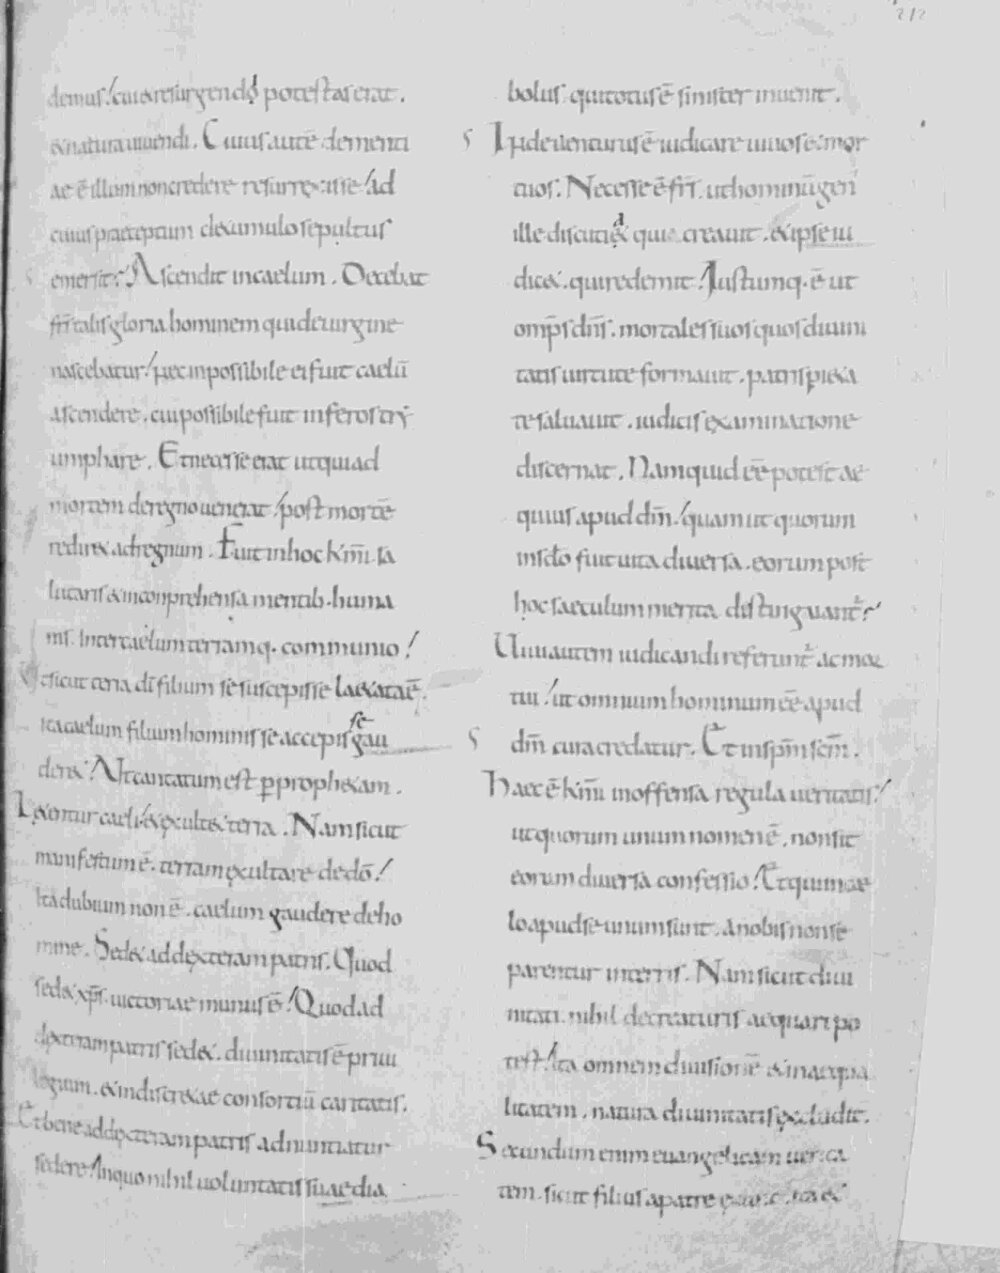 212
demus! cui & resurgendi potestas erat.
& natura uiuendi. Cuius autē dementi
ae ē illum non credere resurrexisse! ad
cuius praeceptum de tumulo sepultus
emersit? Ascendit in caelum. Decebat
frī talis gloria hominem qui de uirgine
nascebatur! Nec inpossibile ei fuit caelū
ascendere. cui possibile fuit inferos try
umphare. Et necesse erat ut qui ad
mortem de regno uenerat! post mortē
redir& ad regnum. Fuit in hoc kmī sa
lutaris & inconprehensa mentib. huma
nis. Inter caelum terramq. communio!
Et sicut terra dī filium se suscepisse laetatae.
ita caelum filium hominis se accepisse gau
der&! Ut cantatum est p proph&am.
Laetentur caeli! & exult& terra. Nam sicut
manifestum ē. terram exultare de dō!
Ita dubium non ē. caelum gaudere de ho
mine. Sed& ad dexteram patris. Quod
sed& xps. uictoriae munus ē! Quod ad
dexteram patris sed&. diuinitatis ē priui
legium. & indiscretae consortiū caritatis.
Et bene ad dexteram patris adnuntiatur
sedere! In quo nihil uoluntatis suae dia
bolus qui totus ē sinister inuenit.
S Inde uenturus ē iudicare uiuos & mor
tuos. Necesse ē frī. ut hominū gen
ille discuti& qui creauit. & ipse iu
dic&. qui redemit! Iustumq. ē ut
omps dns. mortales suos quos diuini
tatis uirtute formauit. patris pieta
te saluauit. iudicis examinatione
discernat. Nam quid eē potest ae
quius apud dm̄! quam ut quorum
in sclo fuit uita diuersa. eorum post
hoc saeculum merita distinguantr?
Uiui autem iudicandi referunt ac mor
tui! ut omnium hominum cē apud
S dm̄ cura credatur. Et in spm̄ scm̄.
Haec ē kmī inoffensa regula ueritatis!
ut quorum unum nomen ē. non sit
eorum diuersa confessio! Et qui in cae
lo apud se unum sunt. a nobis non se
parentur in terris. Nam sicut diui
nitati. nihil de creaturis aequari po
test! ita omnem diuisionē & inaequa
litatem. natura diuinitatis excludit.
Secundum enim euangelicam uerita
tem. sicut filius a patre